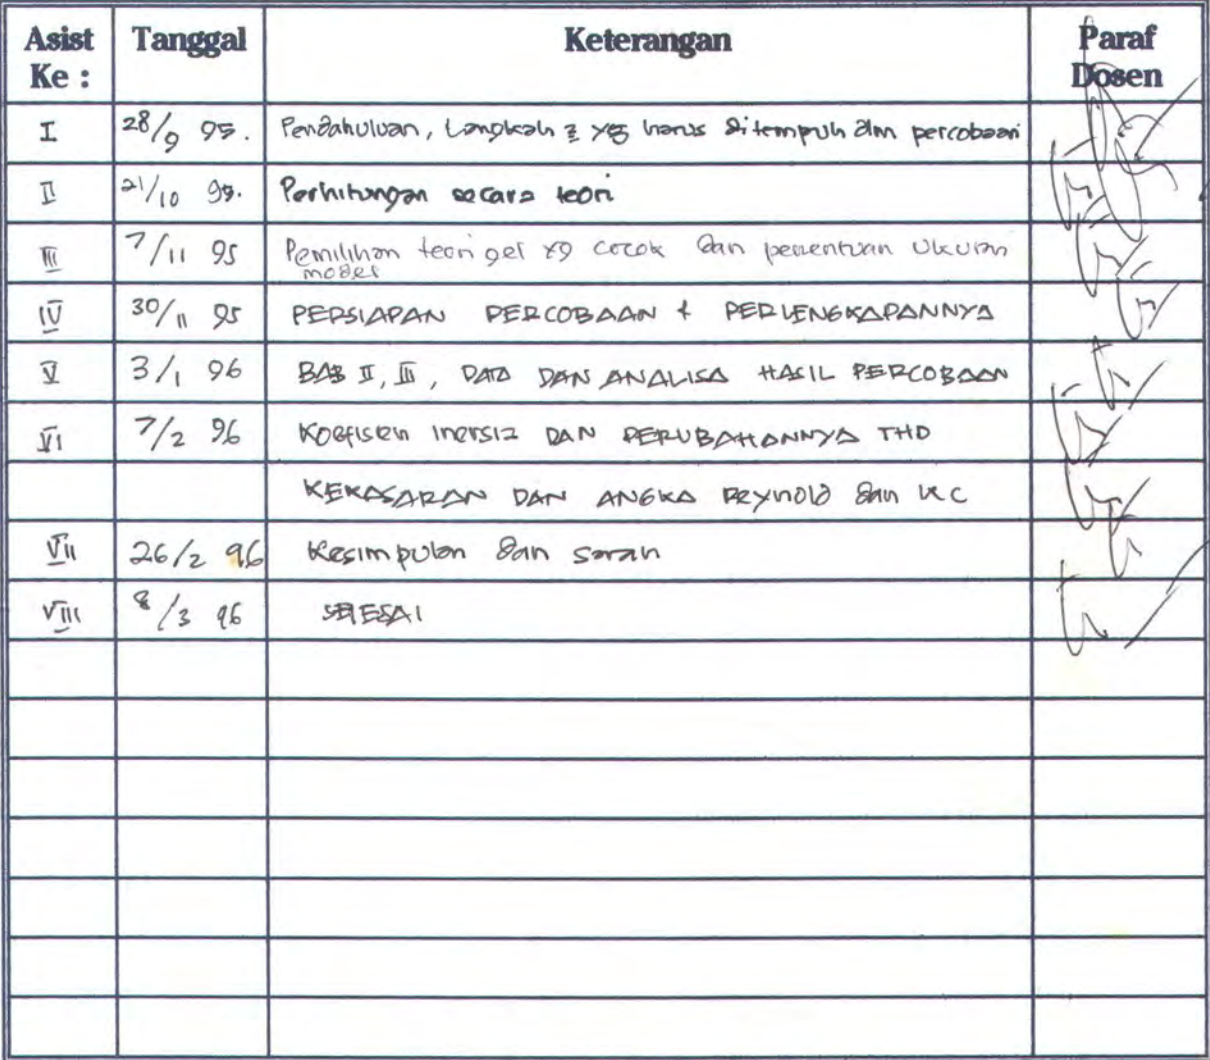 Asist Ke : Tanggal Keterangan Paraf Dosen
I 28/9 95. Pendahuluan, Langkah 2 yg harus ditempuh dlm percobaan
II 21/10 95. Perhitungan secara teori
III 7/11 95 Pemilihan teori gel yg cocok dan penentuan ukuran
model
IV 30/11 95 PERSIAPAN PERCOBAAN + PERLENGKAPANNYA
V 3/1 96 BAB II, III, DATA DAN ANALISA HASIL PERCOBAAN
VI 7/2 96 Koefisien inersia DAN PERUBAHANNYA THD
KEKASARAN DAN ANGKA Reynold dan KC
VII 26/2 96 Kesimpulan dan saran
VIII 8/3 96 SELESAI